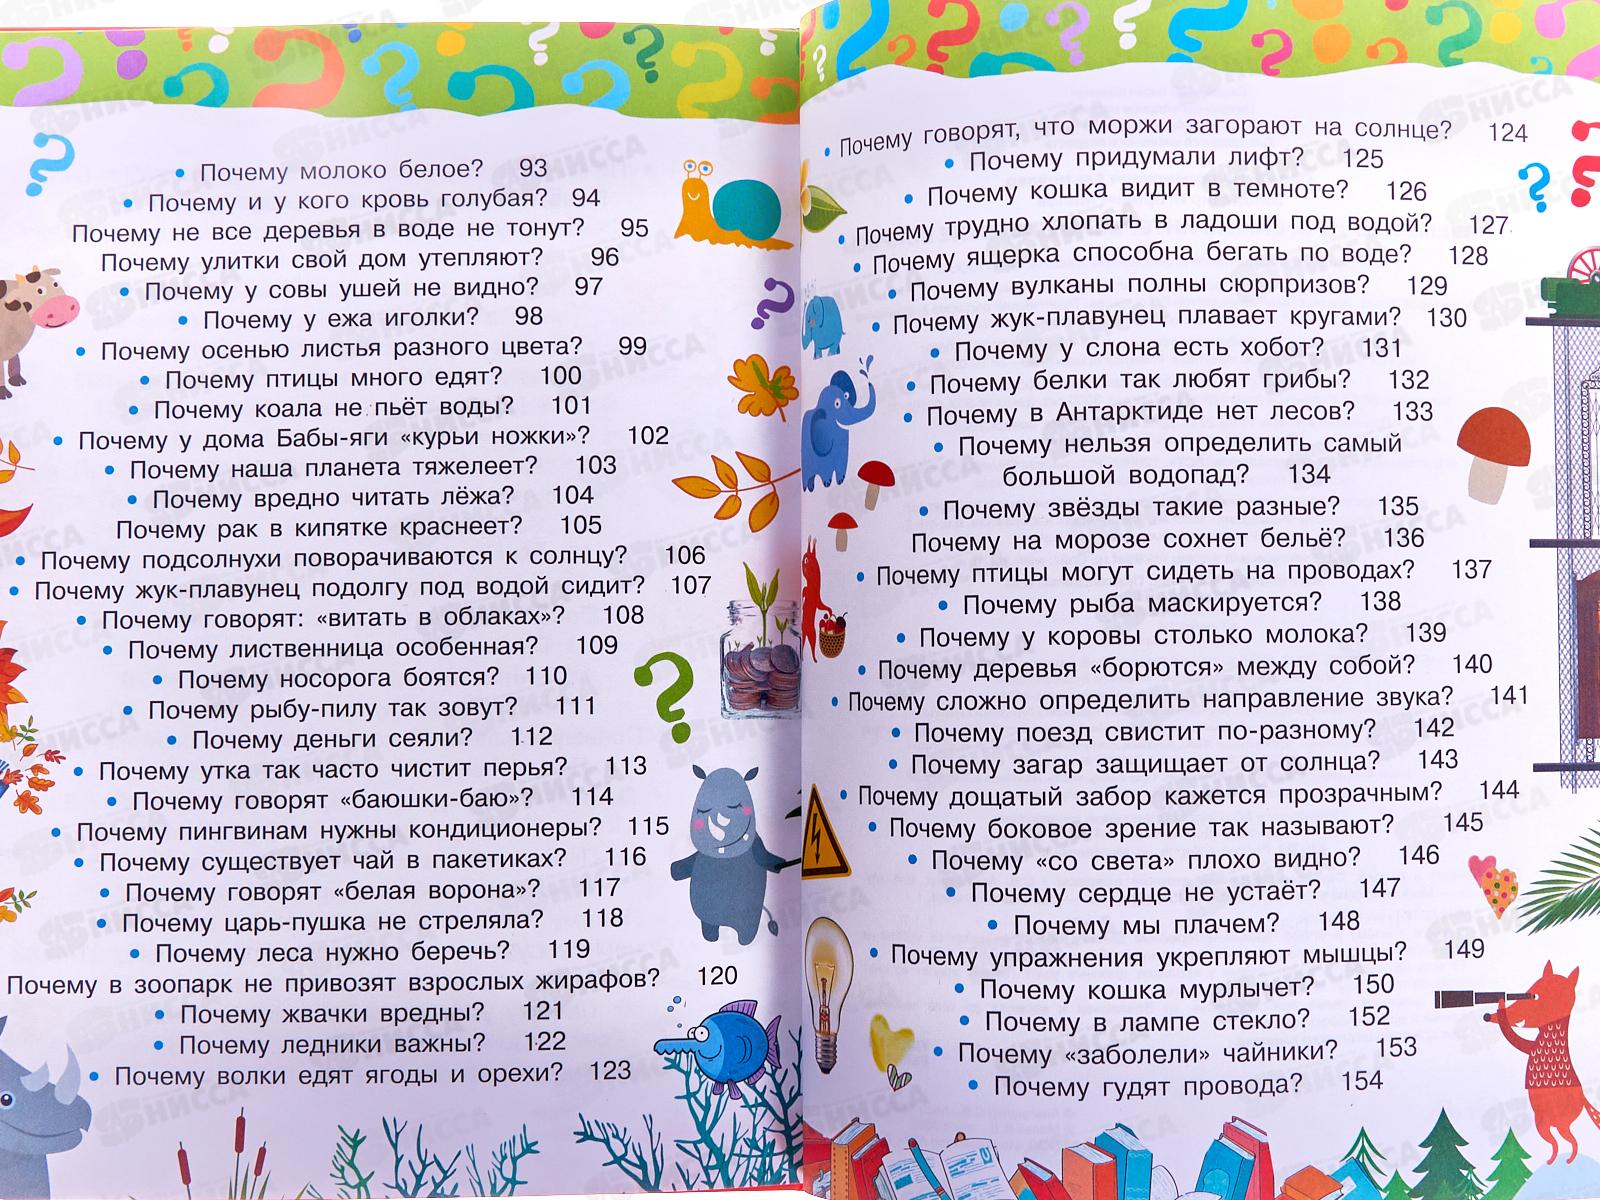 • Почему молоко белое? 93
• Почему и у кого кровь голубая? 94
Почему не все деревья в воде не тонут? 95
Почему улитки свой дом утепляют? 96
• Почему у совы ушей не видно? 97
• Почему у ежа иголки? 98
• Почему осенью листья разного цвета? 99
• Почему птицы много едят? 100
• Почему коала не пьёт воды? 101
• Почему у дома Бабы-яги «курьи ножки»? 102
• Почему наша планета тяжелеет? 103
• Почему вредно читать лёжа? 104
Почему рак в кипятке краснеет? 105
• Почему подсолнухи поворачиваются к солнцу? 106
• Почему жук-плавунец подолгу под водой сидит? 107
• Почему говорят: «витать в облаках»? 108
• Почему лиственница особенная? 109
• Почему носорога боятся? 110
• Почему рыбу-пилу так зовут? 111
• Почему деньги сеяли? 112
• Почему утка так часто чистит перья? 113
• Почему говорят «баюшки-баю»? 114
• Почему пингвинам нужны кондиционеры? 115
• Почему существует чай в пакетиках? 116
• Почему говорят «белая ворона»? 117
• Почему царь-пушка не стреляла? 118
• Почему леса нужно беречь? 119
Почему в зоопарк не привозят взрослых жирафов? 120
• Почему жвачки вредны? 121
• Почему ледники важны? 122
• Почему волки едят ягоды и орехи? 123
• Почему говорят, что моржи загорают на солнце? 124
• Почему придумали лифт? 125
• Почему кошка видит в темноте? 126
• Почему трудно хлопать в ладоши под водой? 127
• Почему ящерка способна бегать по воде? 128
• Почему вулканы полны сюрпризов? 129
• Почему жук-плавунец плавает кругами? 130
• Почему у слона есть хобот? 131
• Почему белки так любят грибы? 132
• Почему в Антарктиде нет лесов? 133
• Почему нельзя определить самый
большой водопад? 134
• Почему звёзды такие разные? 135
Почему на морозе сохнет бельё? 136
• Почему птицы могут сидеть на проводах? 137
• Почему рыба маскируется? 138
• Почему у коровы столько молока? 139
• Почему деревья «борются» между собой? 140
• Почему сложно определить направление звука? 141
• Почему поезд свистит по-разному? 142
• Почему загар защищает от солнца? 143
• Почему дощатый забор кажется прозрачным? 144
• Почему боковое зрение так называют? 145
• Почему «со света» плохо видно? 146
• Почему сердце не устаёт? 147
• Почему мы плачем? 148
• Почему упражнения укрепляют мышцы? 149
• Почему кошка мурлычет? 150
• Почему в лампе стекло? 152
• Почему «заболели» чайники? 153
• Почему гудят провода? 154
НИССА